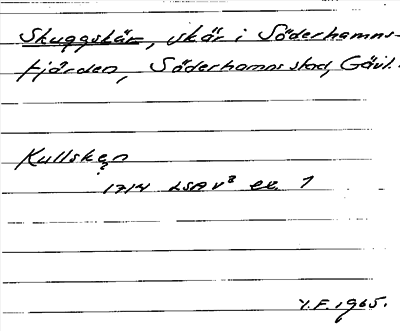 Skuggskär, skär i Söderhamns-
fjärden, Söderhamns stad, Gävl.
Kullsken
?
1714 LSA V8 ex. 1
Y.F. 1965.